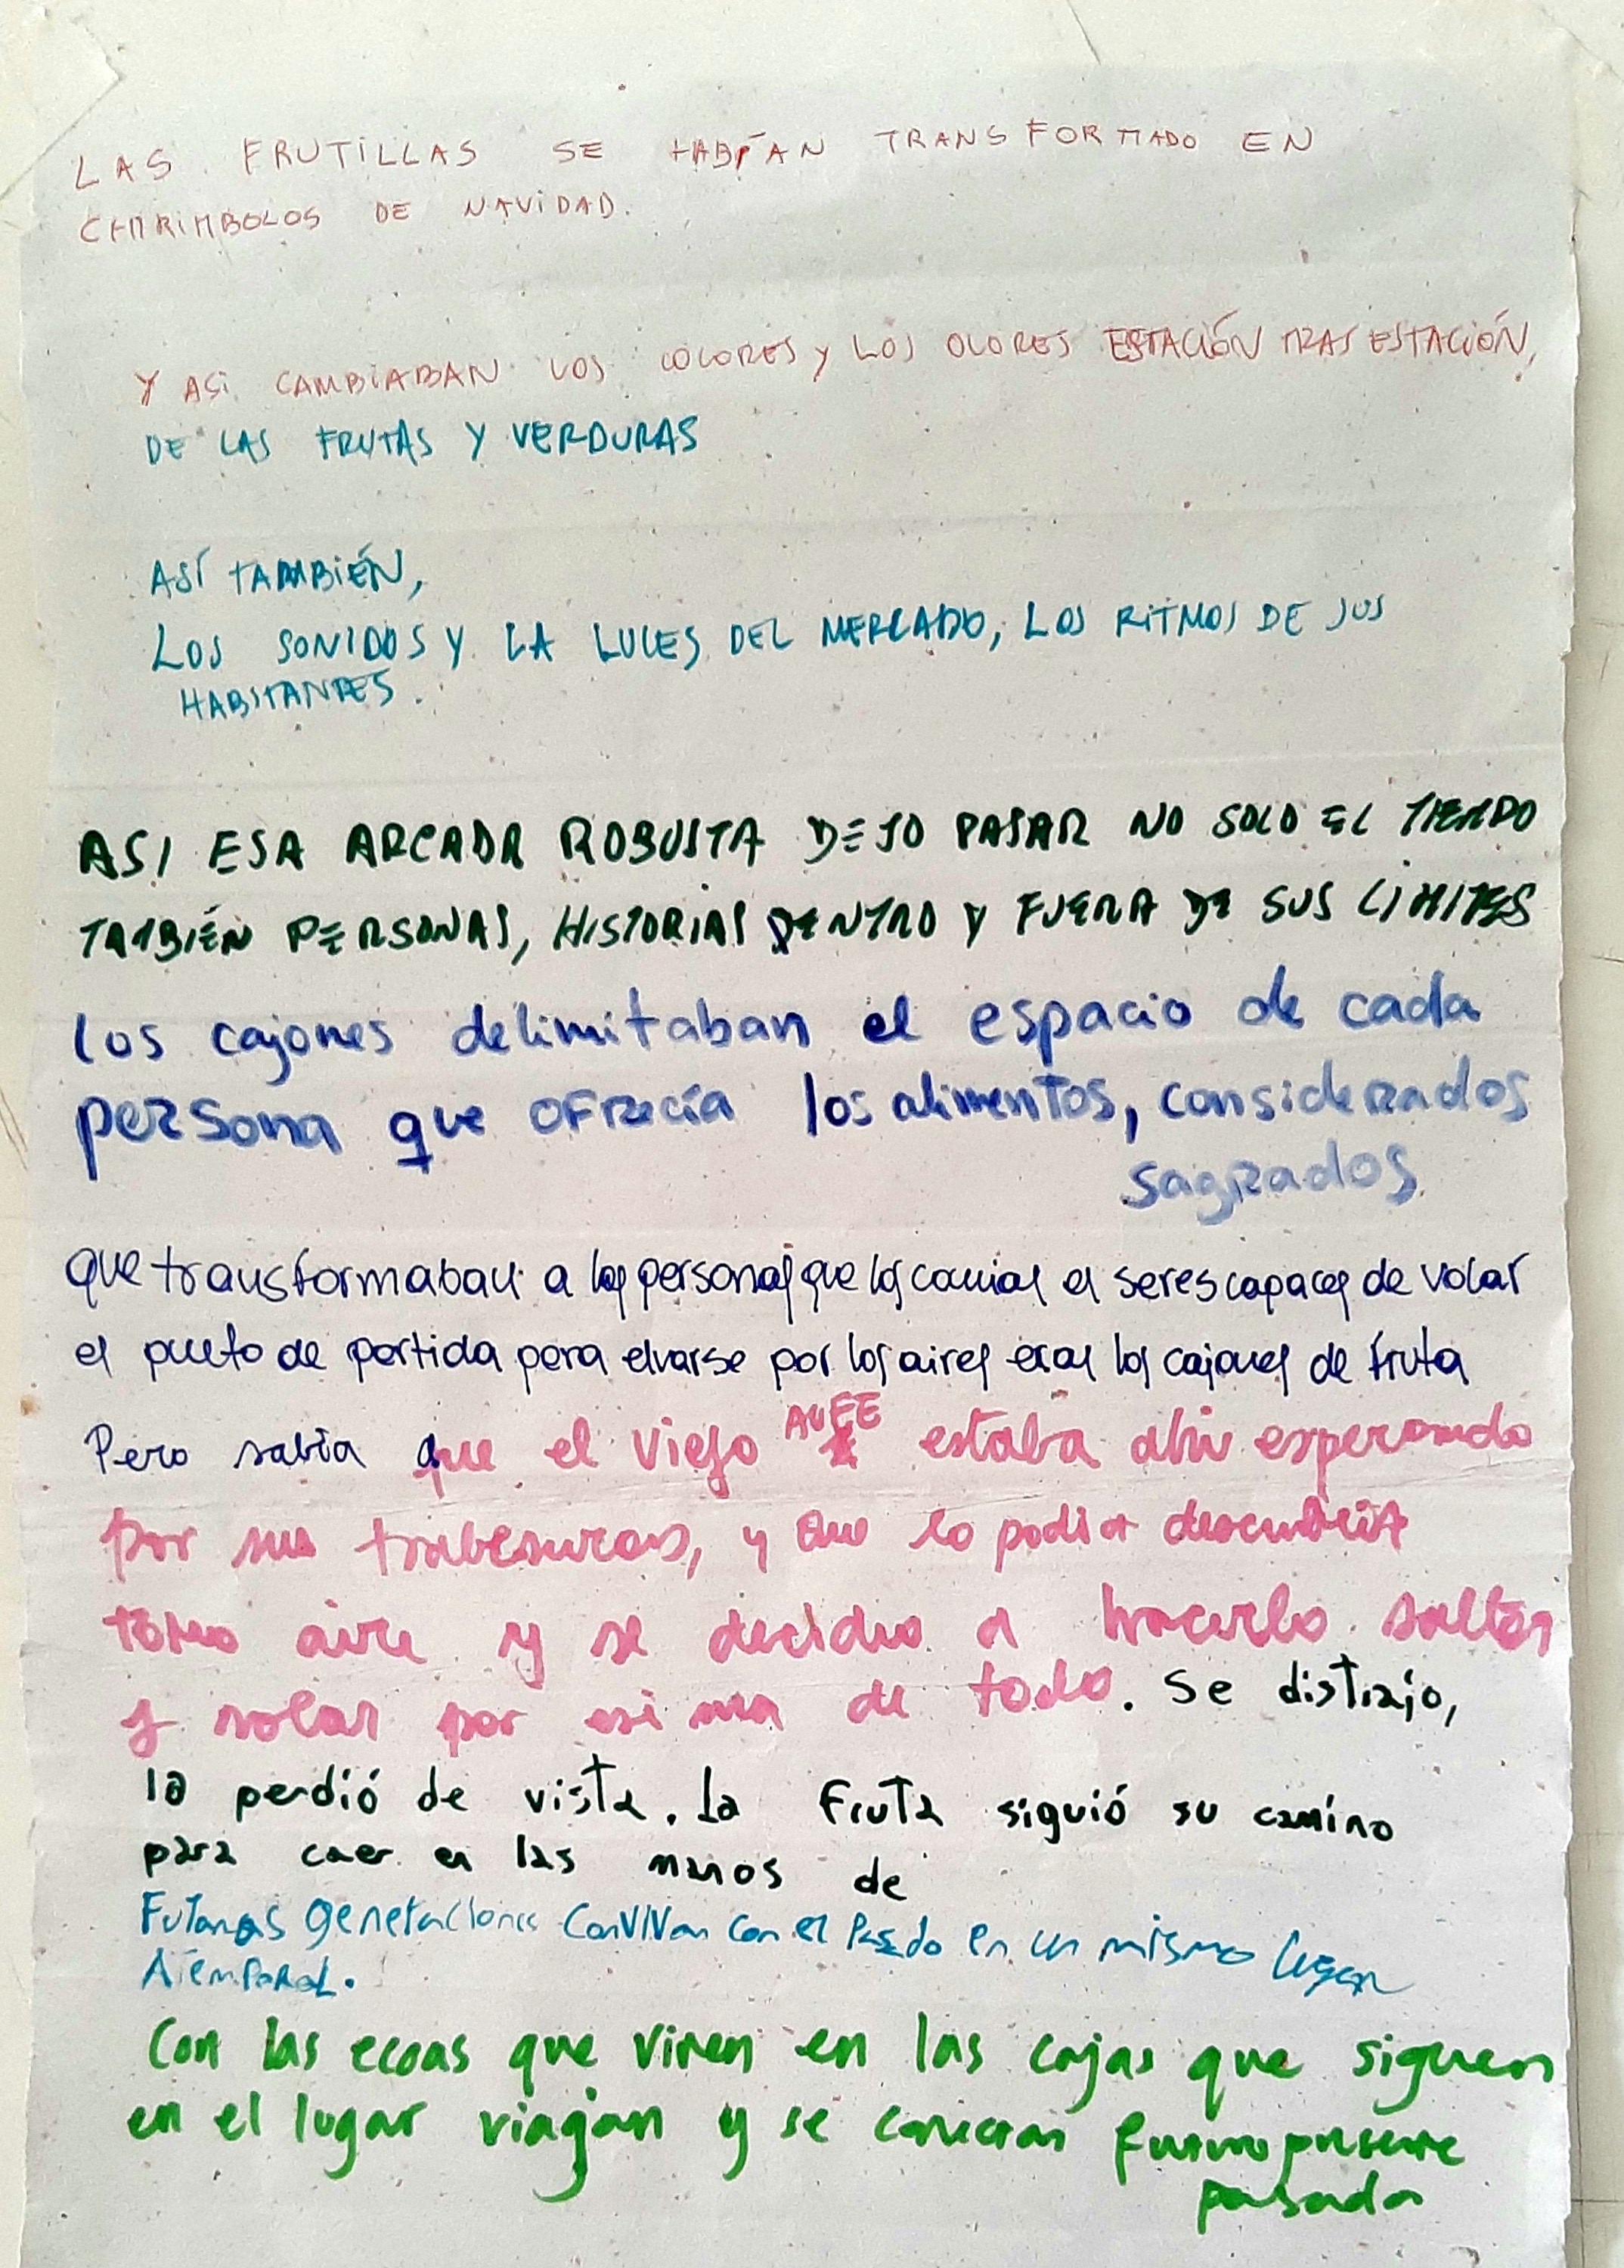 LAS FRUTILLAS SE HABÍAN TRANSFORMADO EN
CHIRIMBOLOS DE NAVIDAD.
Y ASi CAMBIABAN LOS COLORES y LOS OLORES ESTACIÓN TRAS ESTACIÓN,
DE LAS FRUTAS Y VERDURAS
ASÍ TAMBIÉN,
LOS SONIDOS Y LA LUCES DEL MERCADO, LOS RITMOS DE SUS
HABITANTES.
ASI ESA ARCADA ROBUSTA DEJO PASAR NO SOLO EL TIEMPO
TAMBIÉN PERSONAS, HISTORIAS DENTRO Y FUERA DE SUS LÍMITES
los cajones delimitaban el espacio de cada
persona que ofrecía los alimentos, considerados
sagrados
que transformaban a las personas que los comian en seres capaces de volar
el punto de partida para elvarse por los aires eran los cajones de fruta
Pero sabia que el viejo estaba ahi esperando
por sus trabesuras, y que lo podia descubrir
tomo aire y se decidio a hacerlo saltar
y volar por esima de todo. Se distrajo,
la perdió de vista. La fruta siguió su camino
para caer en las manos de
Futuras generaciones conVIVan con el Pasado en un mismo lugar
AtemPoRaL.
Con las ecoas que viven en las cajas que siguen
en el lugar viajan y se conectan futuro presente
pasado